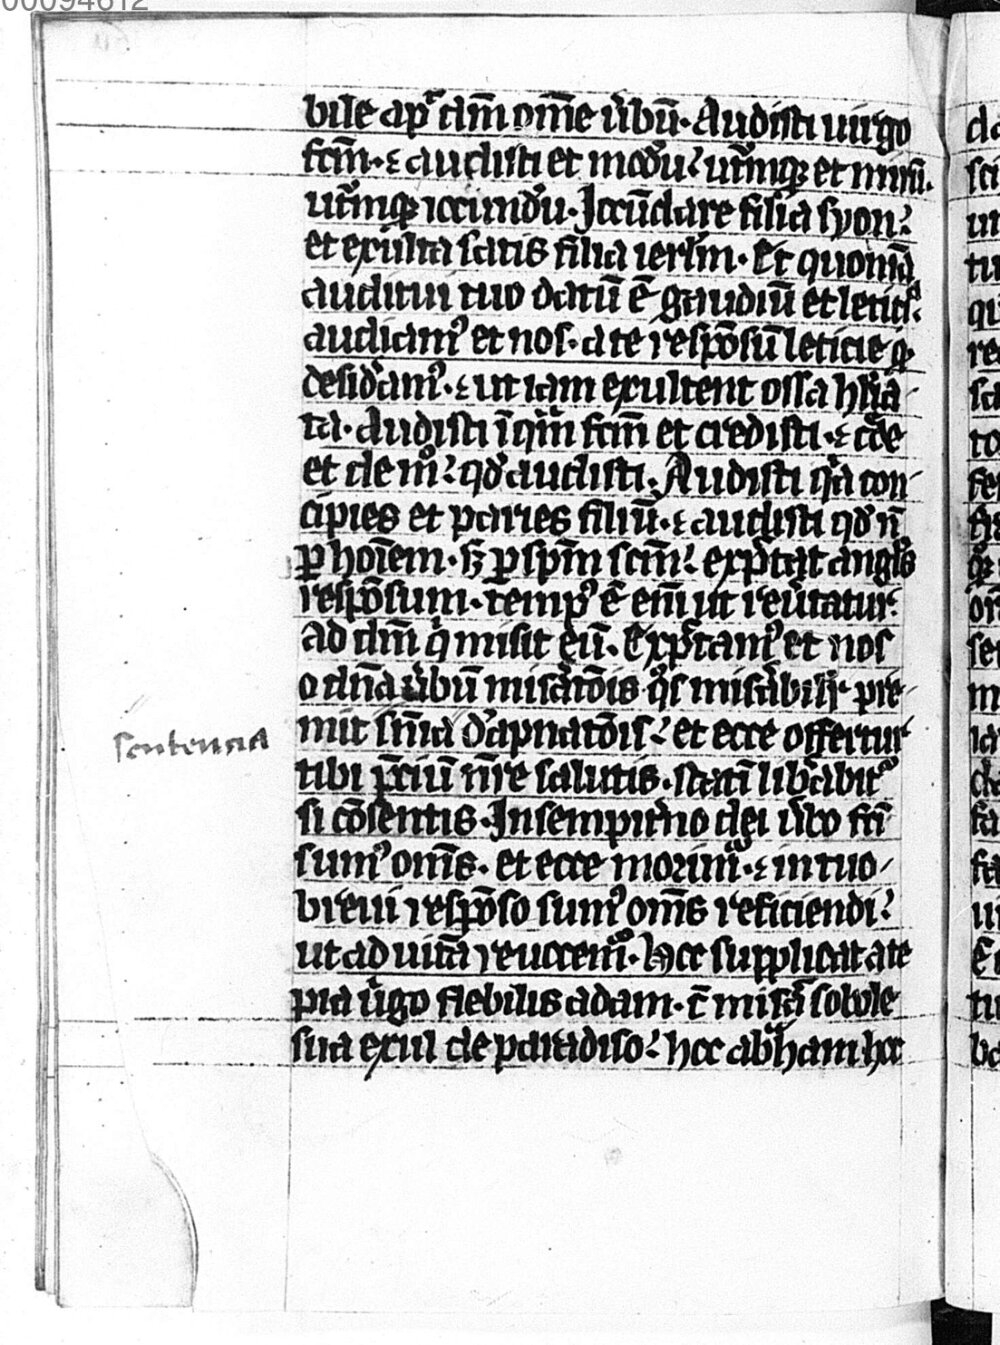 00094612
bile apͬ dm̄ om̄e v̓bū. Audisti uirgo
fcm̄. ⁊ audisti et modū: utͬmqꝫ et mirū.
utͬmqꝫ iocundū. Jocūdare filia syon:
et exulta satis filia ierlm̄. Et quoniā
auditui tuo datū ē gaudiū et leticia:
audiamꝰ et nos. a te respōsū leticie qͣ
desid̓amꝰ. ⁊ ut iam exultent ossa hūilia
ta. Audisti īquā fcm̄ et credisti. ⁊ cͬde
et de mͦ: qd̓ audisti. Audisti qͥa con
cipies et paries filiū. ⁊ audisti qd̓ nͦ
ꝑ hoīem. sꝫ ꝑ spm̄ scm̄: expͨtat anglꝰ
respōsum. tempꝰ ē em̄ ut reūtatur
ad dm̄ qͥ misit eū. Expͨtamꝰ et nos
o dn̄a v̓bū misͣtōis qͦs misͣbilit̓ pre
mit sn̄ia d̓apnatōis: et ecce offertur
sentencia
tibi p̄ciū nr̄e salutis. statī lib̓abimͬ
si cōsentis. In sempit̓no dei v̓bo fc̄i
sumꝰ om̄s. et ecce morimͬ. ⁊ in tuo
breui respōso sumꝰ om̄s reficiendi:
ut ad uitā reuocemͬ. Hoc supplicat a te
pia v̓go flebilis adam. cͫ misͣ sobole
sua exul de paradiso: hoc abͣham. hoc